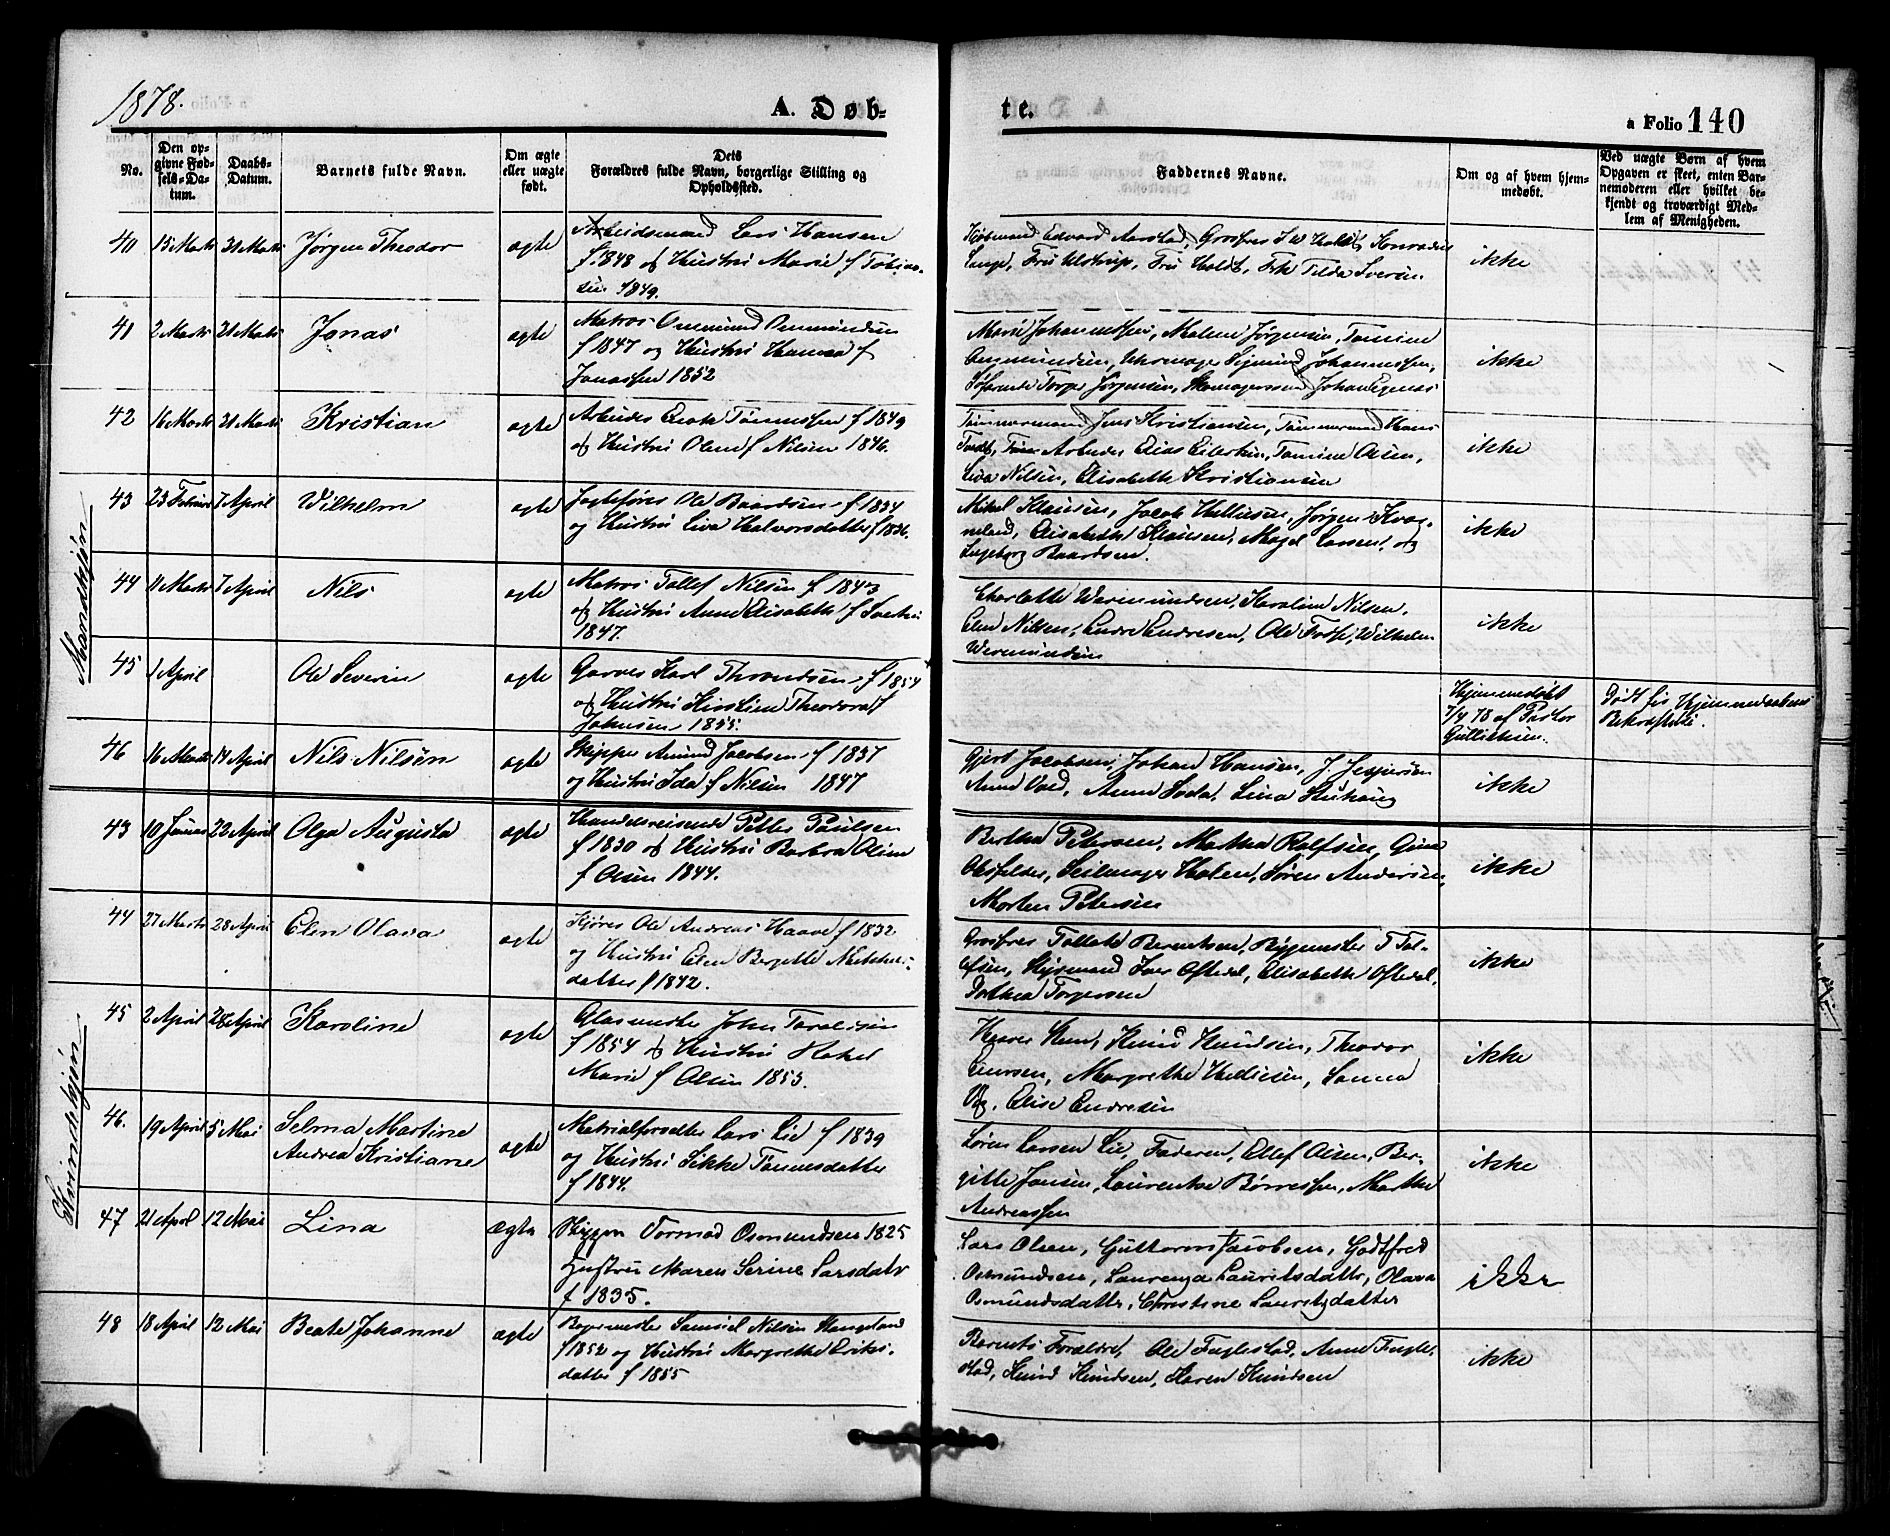 1878.
A. Døb-
te.
a Folio 140
No.
Den op-
givne Fød-
sels-Da-
tum.
Daabs-
Datum.
Barnets fulde Navn.
Om ægte
eller uægte
født.
Dets
Forældres fulde Navn, borgerlige Stilling og
Opholdssted.
Faddernes Navne.
Om og af hvem hjem-
medøbt.
Ved uægte Børn af hvem
Opgaven er skeet, enten Bar-
nemoderen eller hvilket be-
kjendt og troværdigt Med-
lem af Menigheden.
Mandkjøn
40 15 Marts 31 Marts Jørgen Theodor ægte Arbeidsmand Lars Hansen
f. 1848 og Hustru Marie f Tobias-
sen 1849.
Kjøbmand Edvard Aarstad, Grosfrer I W Holdt, Konradus
Lange, Fru Ulstrup, Fru Holdt, Frk Tilda Sversen
ikke
41 2 Marts 31 Marts Jonas ægte Matros Ommund Ommundsen
f 1847 og Hustru Hanna f
Jonassen 1852
Marie Johannessen, Malene Jørgensen, Tomine
Ommundsen, Uhrmager Sigmund Johannessen,
Torger Jørgensen, Johan Egenæs
ikke
42 16 Marts 31 Marts Kristian ægte Arbeider Enok Tønnessen f 1849
og Hustru Olene f Nilsen 1846.
Tømmermand Jens Kristiansen, Tømmermand Hans
Tvedt, Arbeider Elias Eilertsen, Tomine Olsen,
Lina Nilsen, Elisabeth Kristiansen
ikke
43 23 Februar 7 April Wilhelm ægte Jagtefører Ole Baardsen f 1834
og Hustru Siva Halvorsdatter f 1836.
Mikal Klausen, Jacob Helliesen, Jørgen Kvag-
neland, Elisabeth Klausen, Magel Larsen, og
Ingeborg Baardsen.
ikke
44 11 Marts 7 April Nils ægte Matros Tollef Nilsen f 1843
og Hustru Anne Elisabeth f
1847.
Charlotte Weremundsen, Karoline Nilsen,
Elen Nilsen, Endre Endresen, Ole Wilhelm
Weremundsen
ikke
45 1 April Ole Severin ægte Garver Karl Throndsen f 1854
og Hustru Kirstine Theodora f
Johnsen 1855.
Hjemmedøbt
7/4 78 af Pastor
Gulliksen.
Død før Hjemmedaabens
Bekræftelse.
46 16 Marts 14 April Nils Nilsen ægte Skipper Amund Jacobsen f 1837
og Hustru Ida f Nilsen 1847
Gjert Jacobsen, Johan Hansen, J. Jespersen
Anne Vold, Anne Hoda, Lina
ikke
Kvindekjøn
43 10 Januar 22 April Olga Augusta ægte Handelsreisende Petter Paulsen
f 1830 og Hustru Barbra Oline
f Olsen 1844.
Bertha Petersen, Martha Rolfsen, Gina
Obsfelder, Seilmager Halen, Søren Andersen,
Morten Petersen
ikke
44 27 Marts 28 April Elen Olava ægte Kjører Ole Andreas Haave f 1832
og Hustru Elen Bergitte
datter f 1842.
Grosfrer Tollak Berentsen, Rygmester T Tol-
lefsen, Skysmand Iver Oftedal, Elisabeth Oftedal,
Dorthea Torgersen
ikke
45 2 April 28 April Karoline ægte Glasmester John Taraldsen
f 1854 og Hustru Rakel
Marie f Olsen 1853.
Knud Knudsen, Theodor
Einersen, Margrethe Helliesen, Sanna
Vig, Elise Endresen
ikke
46. 19 April 5 Mai Selma Martine
Andrea Kristiane ægte Matrialforvalter Lars Lie f 1839
og Hustru Sikke Tønnesdatter
f 1844.
Søren Larsen Lie, Faderen, Ellef Olsen, Ber-
gitte Jansen, Laurentse Børressen, Martha
Andreassen
ikke
47 21 April 12 Mai Lina ægte Skipper Tormod Osmundsen 1825
Hustru Maren Serine Larsdatr
f 1835.
Lars Olsen, Guttorm Jacobsen, Godtfred
Osmundsen, Laurenza Lauritsdatter, Olava
Osmundsdatter, Christine Lauritzdatter
ikke
48 18 April 12 Mai Beate Johanne ægte Bagermester Samuel Nilsen Haugland
f 1852 og Hustru Margrethe Eriks-
datter f 1855
Barnets Forældre, Ole Fuglestad, Anne Fugle-
stad, Knud Knudsen, Karen Knudsen
ikke